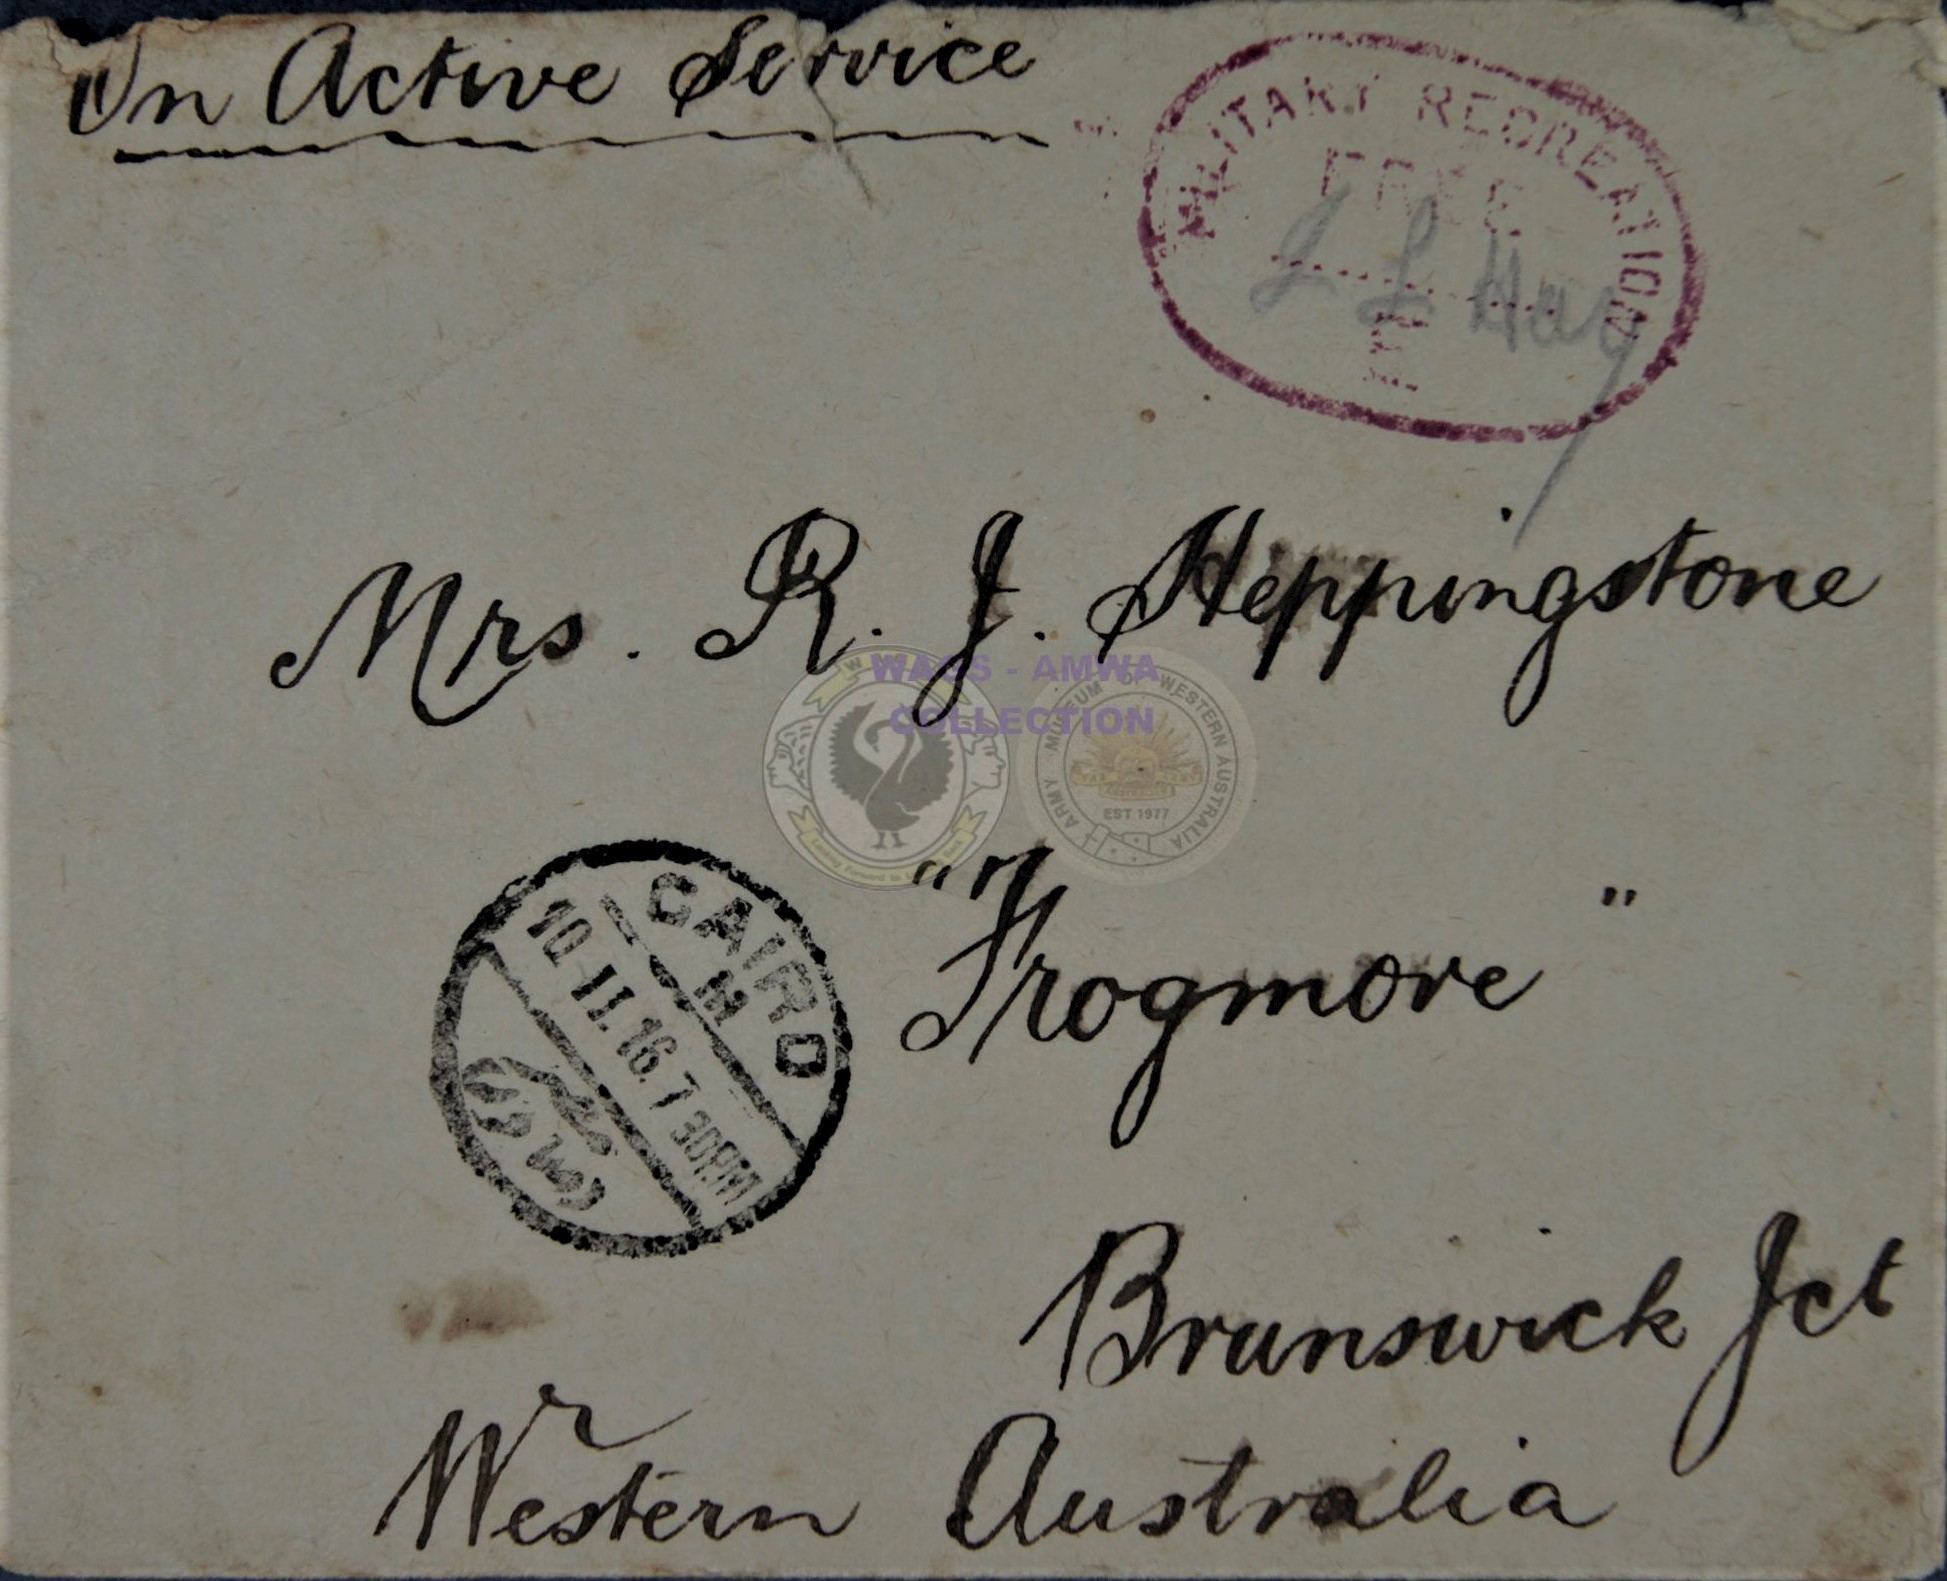 On Active Service
MILITARY RECREATION
FREE
J L Hay
Mrs. R. J. Heppingstone
WAGS - AMWA
COLLECTION
ARMY MUSEUM OF WESTERN AUSTRALIA
EST 1977
"Frogmore"
CAIRO
10. II. 16. 7 30PM
Brunswick Jct
Western Australia